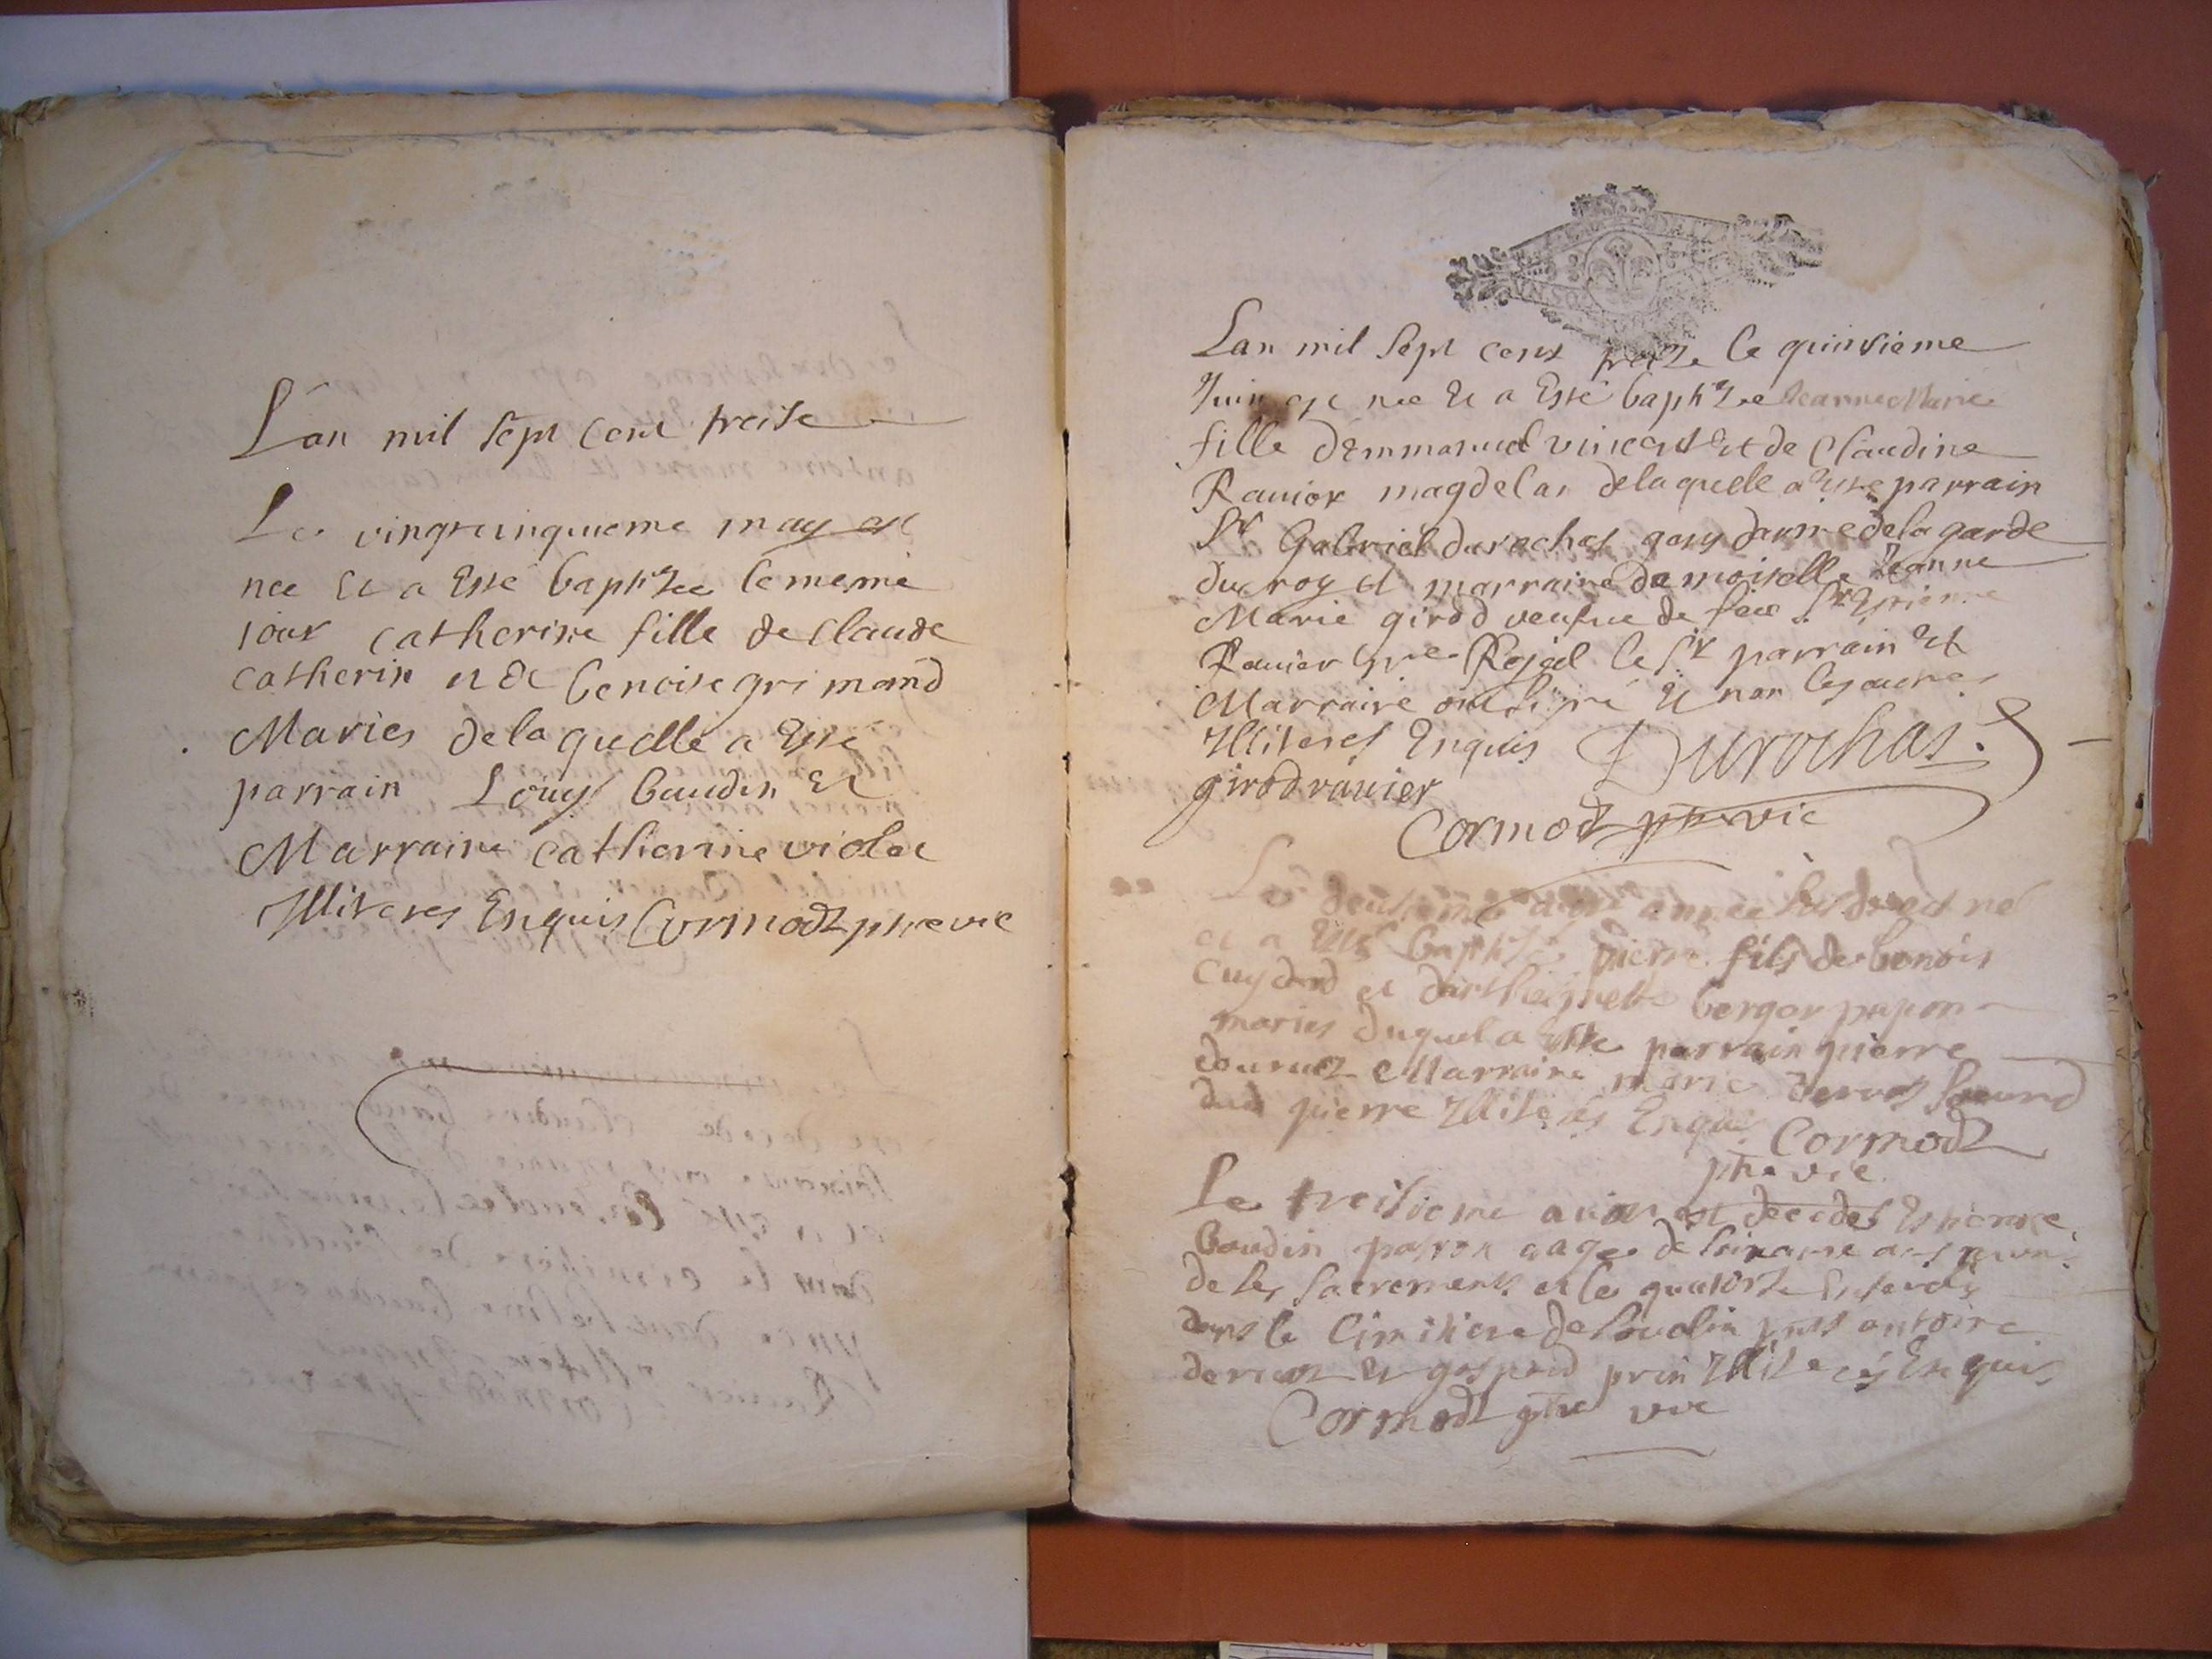 Lan mil sept cent treise
Le vingtcinquieme may est
nee et a Esté baptisee le meme
jour catherine fille de claude
catherin et de benoite grimand
Maries de laquelle a Esté
parrain Louys baudin et
Marraine catherine violet
Illiteres Enquis Cormodz ptre vic
Lan mil sept cent treize le quinsieme
Juin est nee et a Esté baptisee Jeanne Marie
fille d'Emmanuel vincent et de Claudine
Ranier magdelan de laquelle a Esté parrain
Sr Gabriel durochas gens darme de la garde
du roy et marraine damoiselle Jeanne
Marie girod veufue de feu Sr Estienne
Ranier Royal le Sr parrain et
Marraine ont signé et non les autres
Illiteres Enquis Durochas
girod ranier
Cormodz ptre vic
Le deusieme aoust année susdite est né
et a Esté baptisé pierre fils de benoit
Cuzand et berger papon
maries duquel a Esté parrain pierre
Marraine marie
dud pierre Illiteres Enquis Cormodz
ptre vic
Le treisieme aoust est decedes Estienne
baudin patron aagé de soixante ans
de les sacrements et le quatorze Enterré
dans le Cimitiere de antoine
et gaspard prin Illiteres Enquis
Cormodz ptre vic